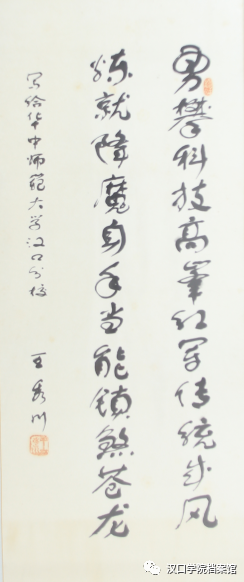 勇攀科技高峯红军传统成风
练就降魔身手当能锁煞苍龙
写给华中师范大学汉口分校
王川
汉口学院档案馆